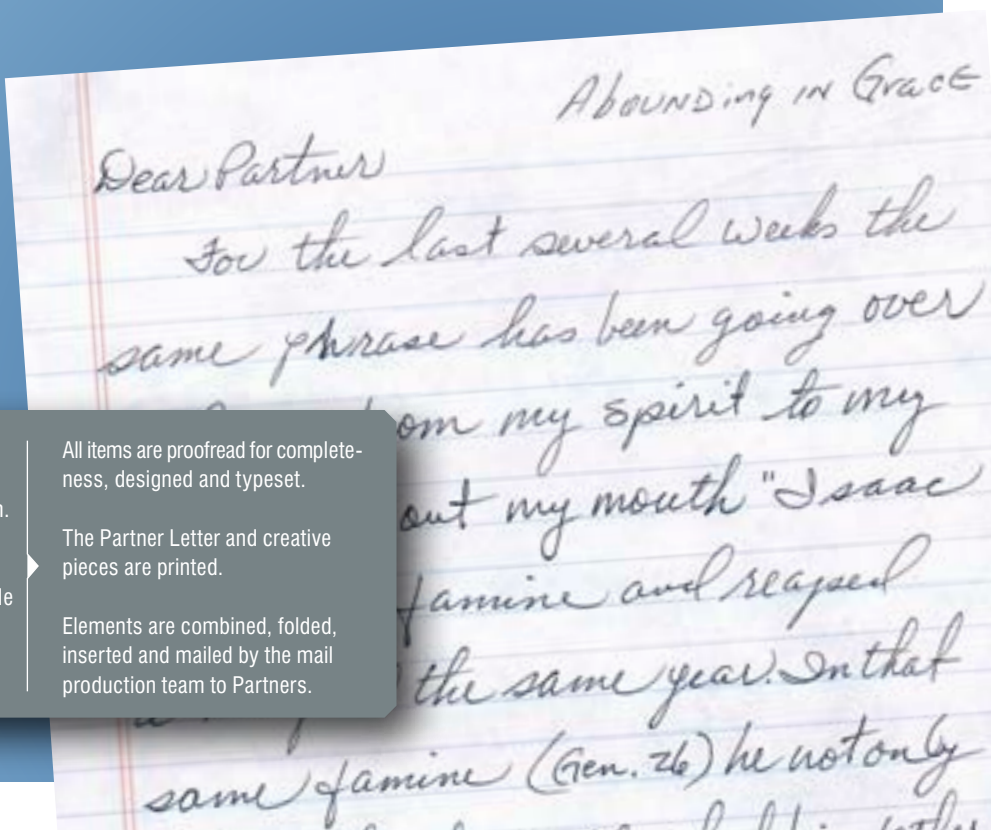 Abounding in Grace
Dear Partner
For the last several weeks the
same phrase has been going over
my spirit to my
out my mouth "Isaac
famine and reaped
the same year. In that
same famine (Gen. 26) he not only
All items are proofread for complete-
ness, designed and typeset.
The Partner Letter and creative
pieces are printed.
Elements are combined, folded,
inserted and mailed by the mail
production team to Partners.